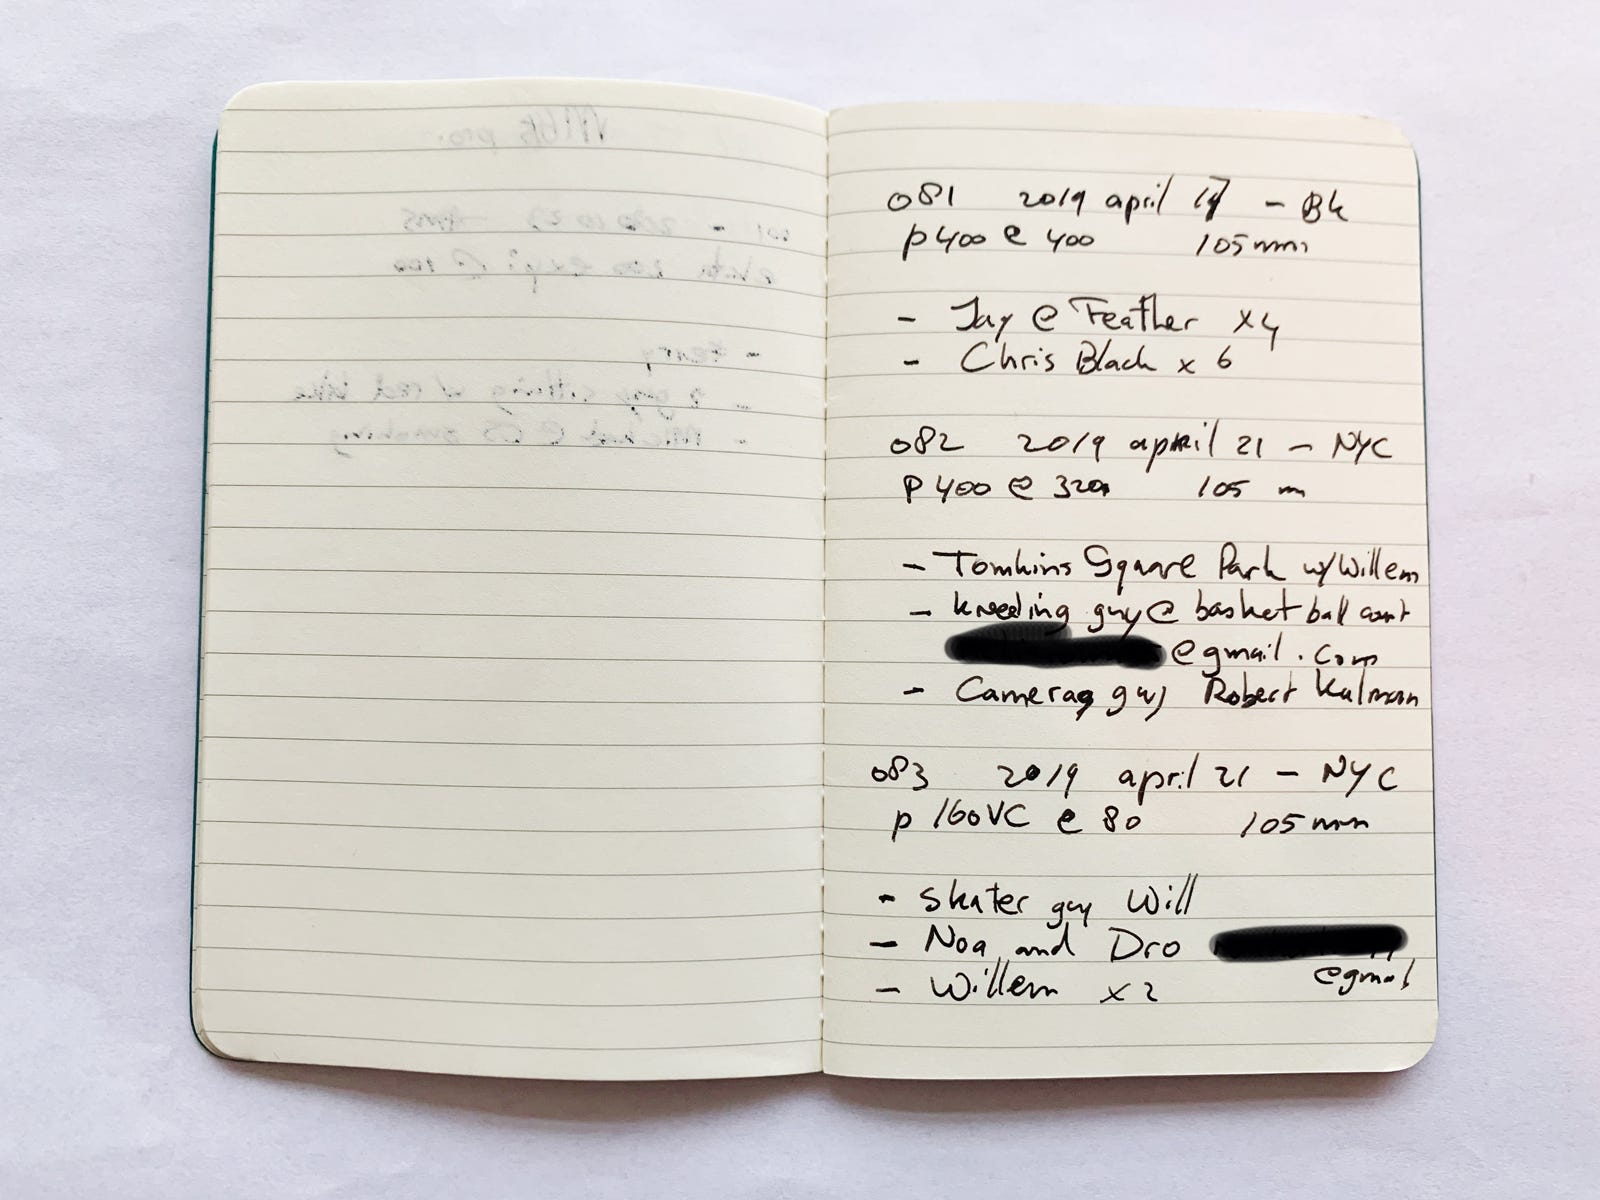 081 2019 april 17 - Bk
p400 @ 400 105mm
- Jay @ Feather x4
- Chris Black x 6
082 2019 april 21 - NYC
P400 @ 320 105 m
- Tomkins Square Park w/Willem
- kneeling guy @ basket ball court
@gmail.com
- Camera guy Robert Kalman
083 2019 april 21 - NYC
p 160VC @ 80 105mm
- skater guy Will
- Noa and Dro
@gmail
- Willem x2